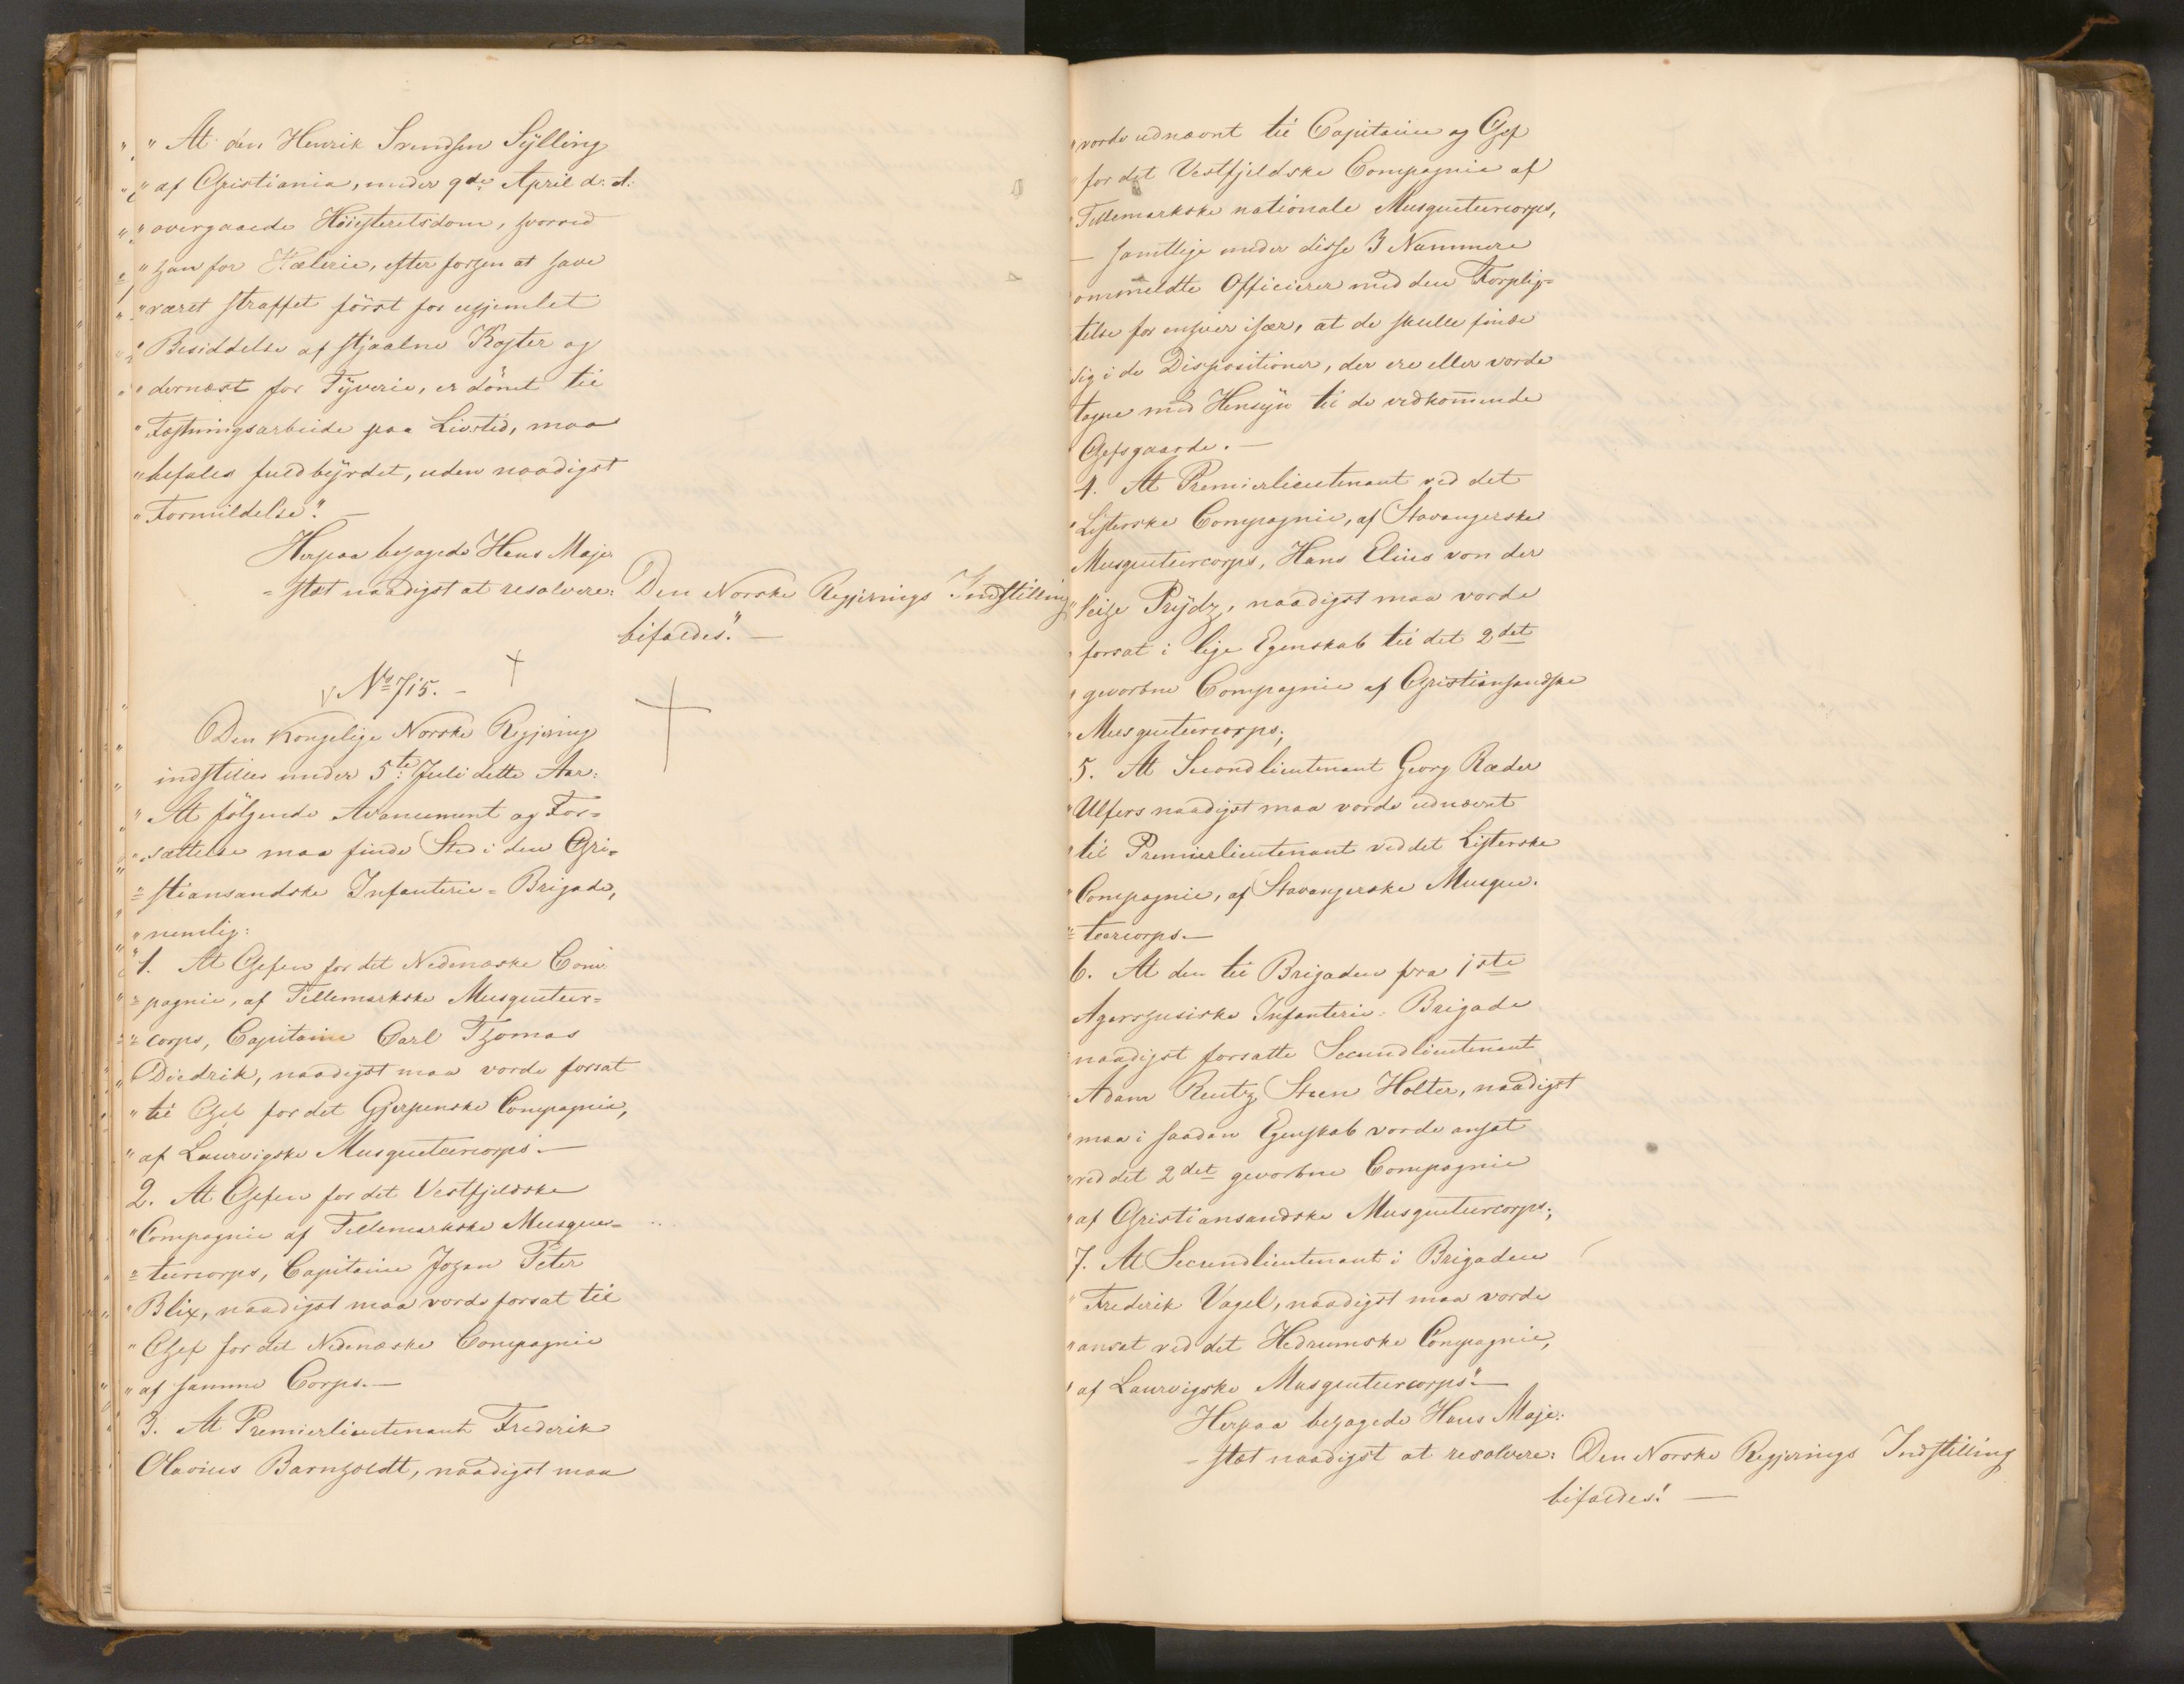 " At den Henrik Svendsen Sylling
" af Christiania, under 9de April d: A:
" overgaaede Höiesteretsdom, hvorved
" han for Hæleri, efter forhen at have
" været straffet först for uhjemlet
" Besiddelse af stjaalne Koster og
" dernæst for Tyverie, er dömt til
" Fæstningsarbeide paa Livstid, maa
" befales fuldbyrdet, uden naadigst
" Formildelse." —
Herpaa behagede Hans Maje
= stæt naadigst at resolvere: Den Norske Regjerings Indstilling
bifaldes." —
No 715. —
Den Kongelige Norske Regjering
indstiller under 5te Juli dette Aar:
" At fölgende Avancement og For=
" sættelse maa finde Sted i den Chri=
= stiansandske Infanterie = Brigade,
" nemlig:
" 1. At Chefen for det Nedenæske Com
" = pagnie, af Tellemarkske Musqueteer=
= corps, Capitaine Carl Thomas
" Diedrik, naadigst maa vorde forsat
" til Chef for det Gjerpenske Compagnie,
" af Laurvigske Musqueteercorps. —
2. At Chefen for det Vestfjeldske
" Compagnie af Tellemarkske Musque=
= teercorps, Capitaine Johan Peter
" Blix, naadigst maa vorde forsat til
" Chef for det Nedenæske Compagnie
" af samme Corps. —
3. At Premierlieutenant Frederik
Olavius Barnholdt, naadigst maa
" vorde udnævnt til Capitaine og Chef
" for det Vestfjeldske Compagnie af
" Tellemarkske nationale Musqueteercorps,
— samtlige under disse 3 Nummere
ommeldte Officierer med den Forplig=
telse for enhver især, at de skulle finde
sig i de Dispositioner, der ere eller vorde
tagne med Hensyn til de vedkommende
Chefsgaarde. —
4. At Premierlieutenant ved det
" Listerske Compagnie, af Stavangerske
Musqueteercorps, Hans Elias von der
" Prydz, naadigst maa vorde
" forsat i lige Egenskab til det 2det
" gevorbne Compagnie af Christiansandske
" Musqueteercorps;
5. At Secondlieutenant Georg Ræder
" Ulfers naadigst maa vorde udnævnt
" til Premierlieutenant ved det Listerske
" Compagnie, af Stavangerske Musque=
= teercorps. —
6. At den til Brigaden fra 1ste
Agershusiske Infanterie = Brigade
" naadigst forsatte Secundlieutenant
Adam Reutz Steen Holter, naadigst
" maa i saadan Egenskab vorde ansat
" ved det 2det gevorbne Compagnie
" af Christiansandske Musqueteercorps;
7. At Secundlieutenant i Brigaden
" Frederik Vagel, naadigst maa vorde
" ansat ved det Hedrumske Compagnie,
" af Laurvigske Musqueteercorps." —
Herpaa behagede Hans Maje:
= stæt naadigst at resolvere: Den Norske Regjerings Indstilling
bifaldes." —